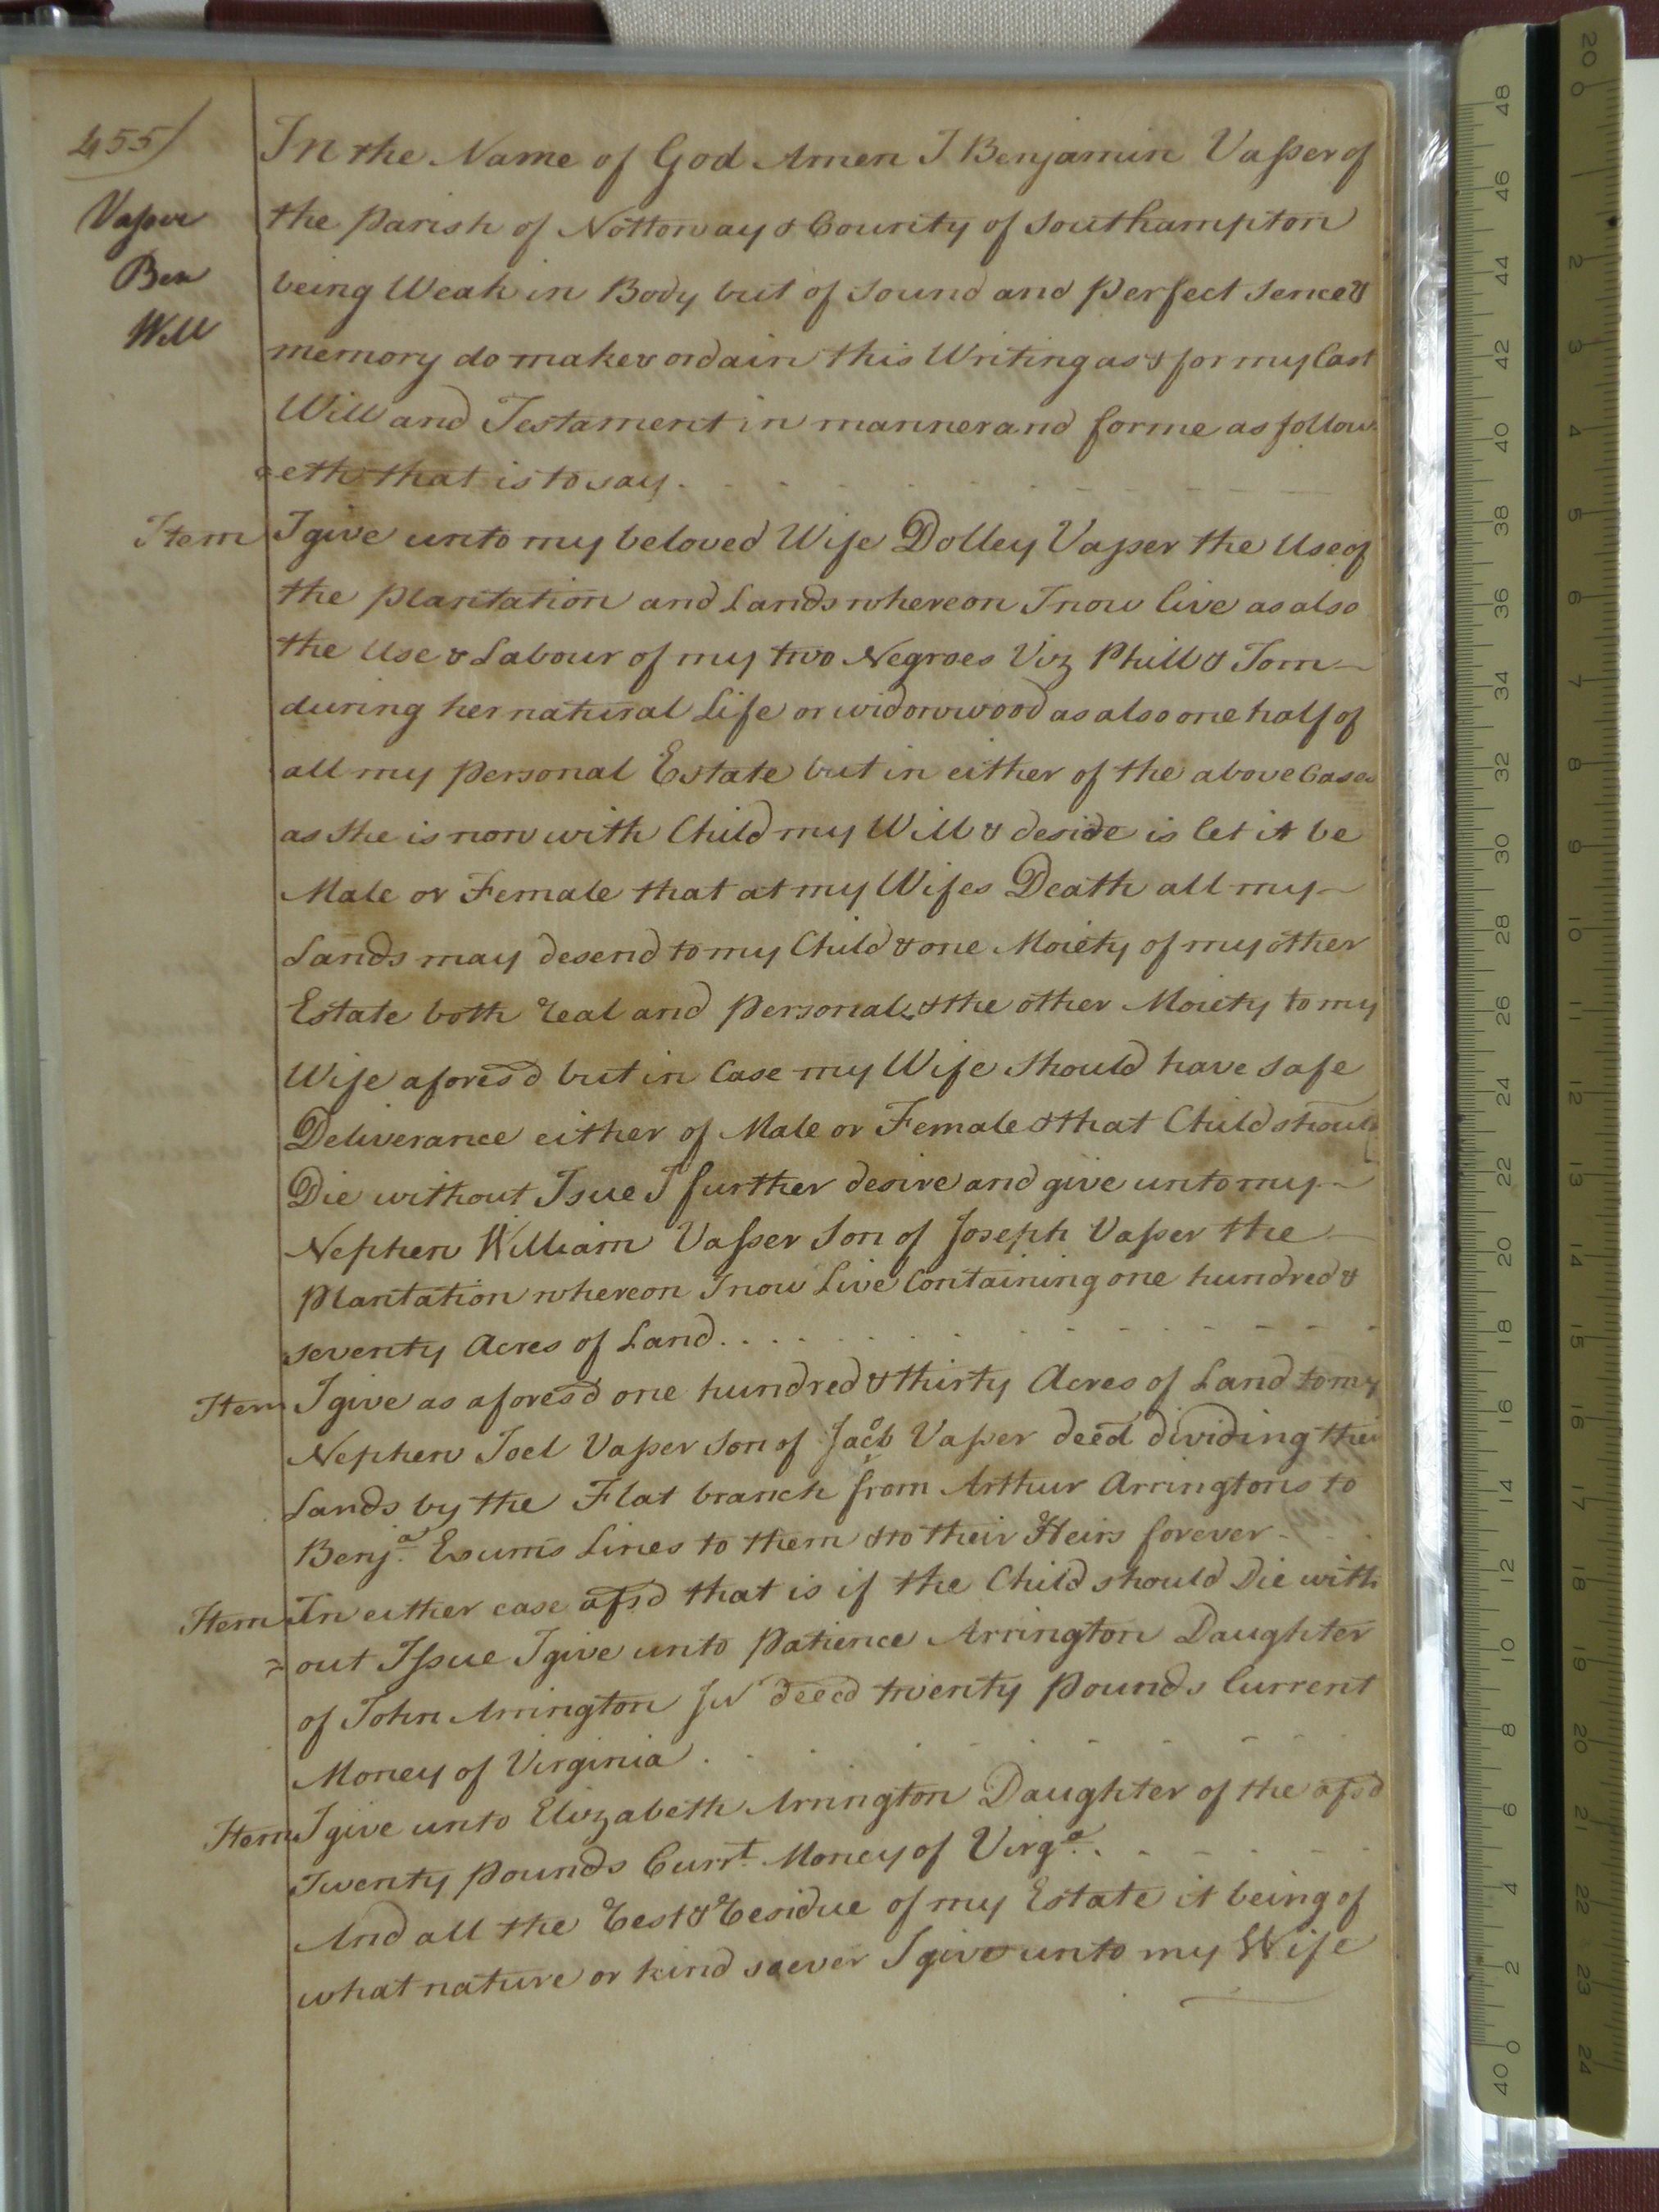 455/
Vasser
Ben
Will
In the Name of God Amen I Benjamin Vasser of
the Parish of Nottoway & County of Southampton
being Weak in Body but of sound and perfect sence &
memory do make & ordain this Writing as & for my last
Will and Testament in manner and forme as follow
=eth that is to say
Item I give unto my beloved Wife Dolley Vasser the Use of
the Plantation and Lands whereon I now live as also
the Use & Labour of my two Negroes Viz Phill & Tom
during her natural Life or widowwood as also one half of
all my personal Estate but in either of the above Cases
as she is now with Child my Will & deside is let it be
Male or Female that at my Wifes Death all my
Lands may desend to my Child & one Moiety of my other
Estate both real and personal & the other Moiety to my
Wife afores'd but in Case my Wife should have safe
Deliverance either of Male or Female & that Child should
Die without Isue I further desire and give unto my
Nephew William Vasser Son of Joseph Vasser the
Plantation whereon I now Live Containing one hundred &
seventy Acres of Land
Item I give as afores'd one hundred & thirty Acres of Land to my
Nephew Joel Vasser Son of Jacob Vasser deed dividing their
Lands by the Flat branch from Arthur Arringtons to
Benja. Exums Lines to them & to their Heirs forever
Item In either case afsd that is if the Child should Die with
=out Issue I give unto Patience Arrington Daughter
of John Arrington Jur deced twenty Pounds Current
Money of Virginia
Item I give unto Elizabeth Arrington Daughter of the afsd
Twenty Pounds Currt. Money of Virga.
And all the rest & residue of my Estate it being of
what nature or kind soever I give unto my Wife